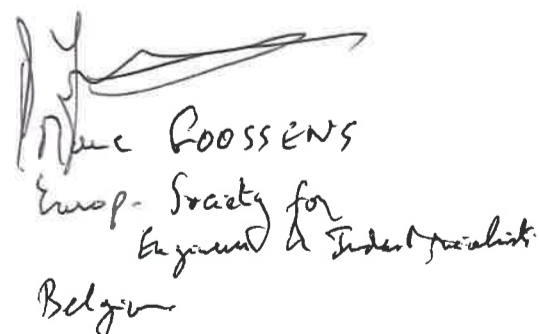 GOOSSENS
Europ. Society for
Engineers & Industrialists
Belgium